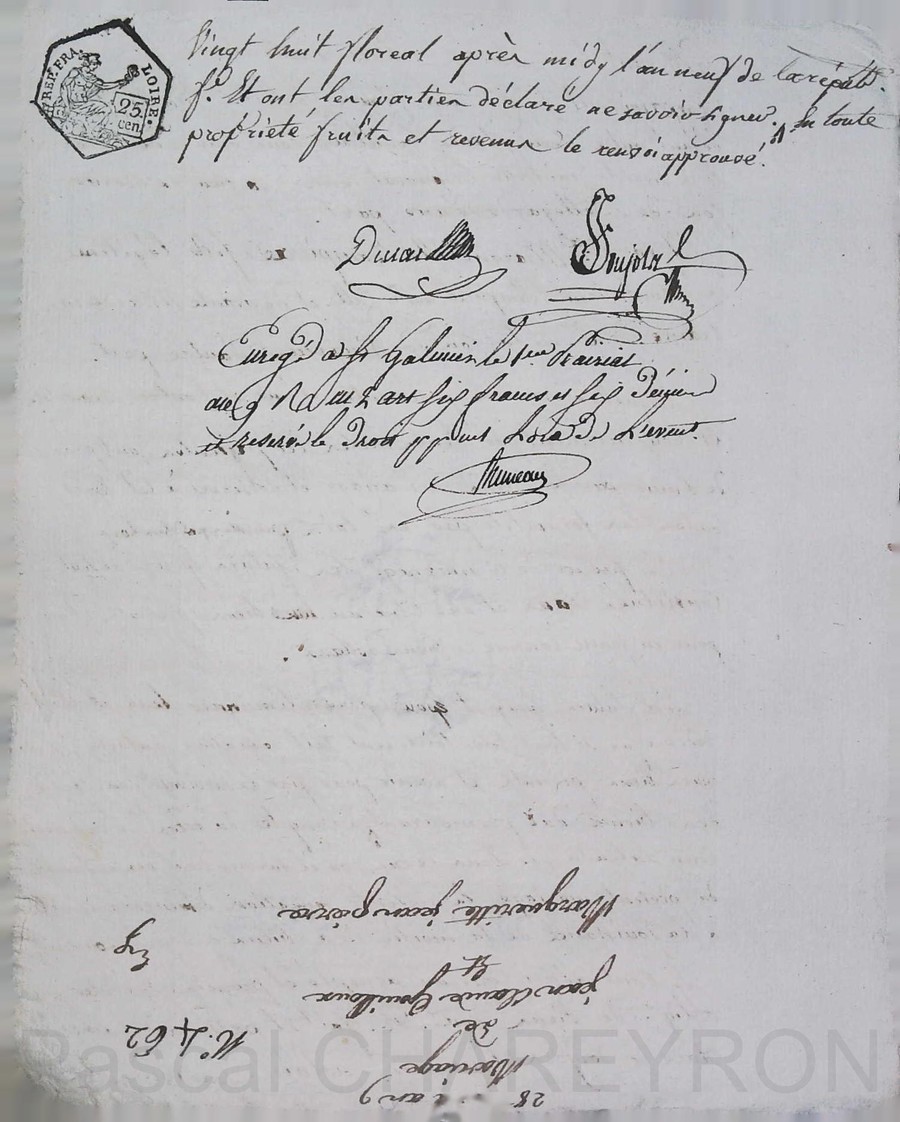 REP. FRA. LOIRE.
25.
cen.
Vingt huit floreal après midy l'an neuf de la répub.
f.e Et ont les parties déclaré ne savoir signer. en toute
propriété fruits et revenus le renvoi approuvé.
Enregé a St Galmier le 1er Prairial
an 9 six francs et six Décimes
et reservé le Droit Lors De L'event.
28 an 9
Mariage
de
jean Claude
Et
Marguerite jean pierre
N.o 462
Exp
Pascal CHAREYRON